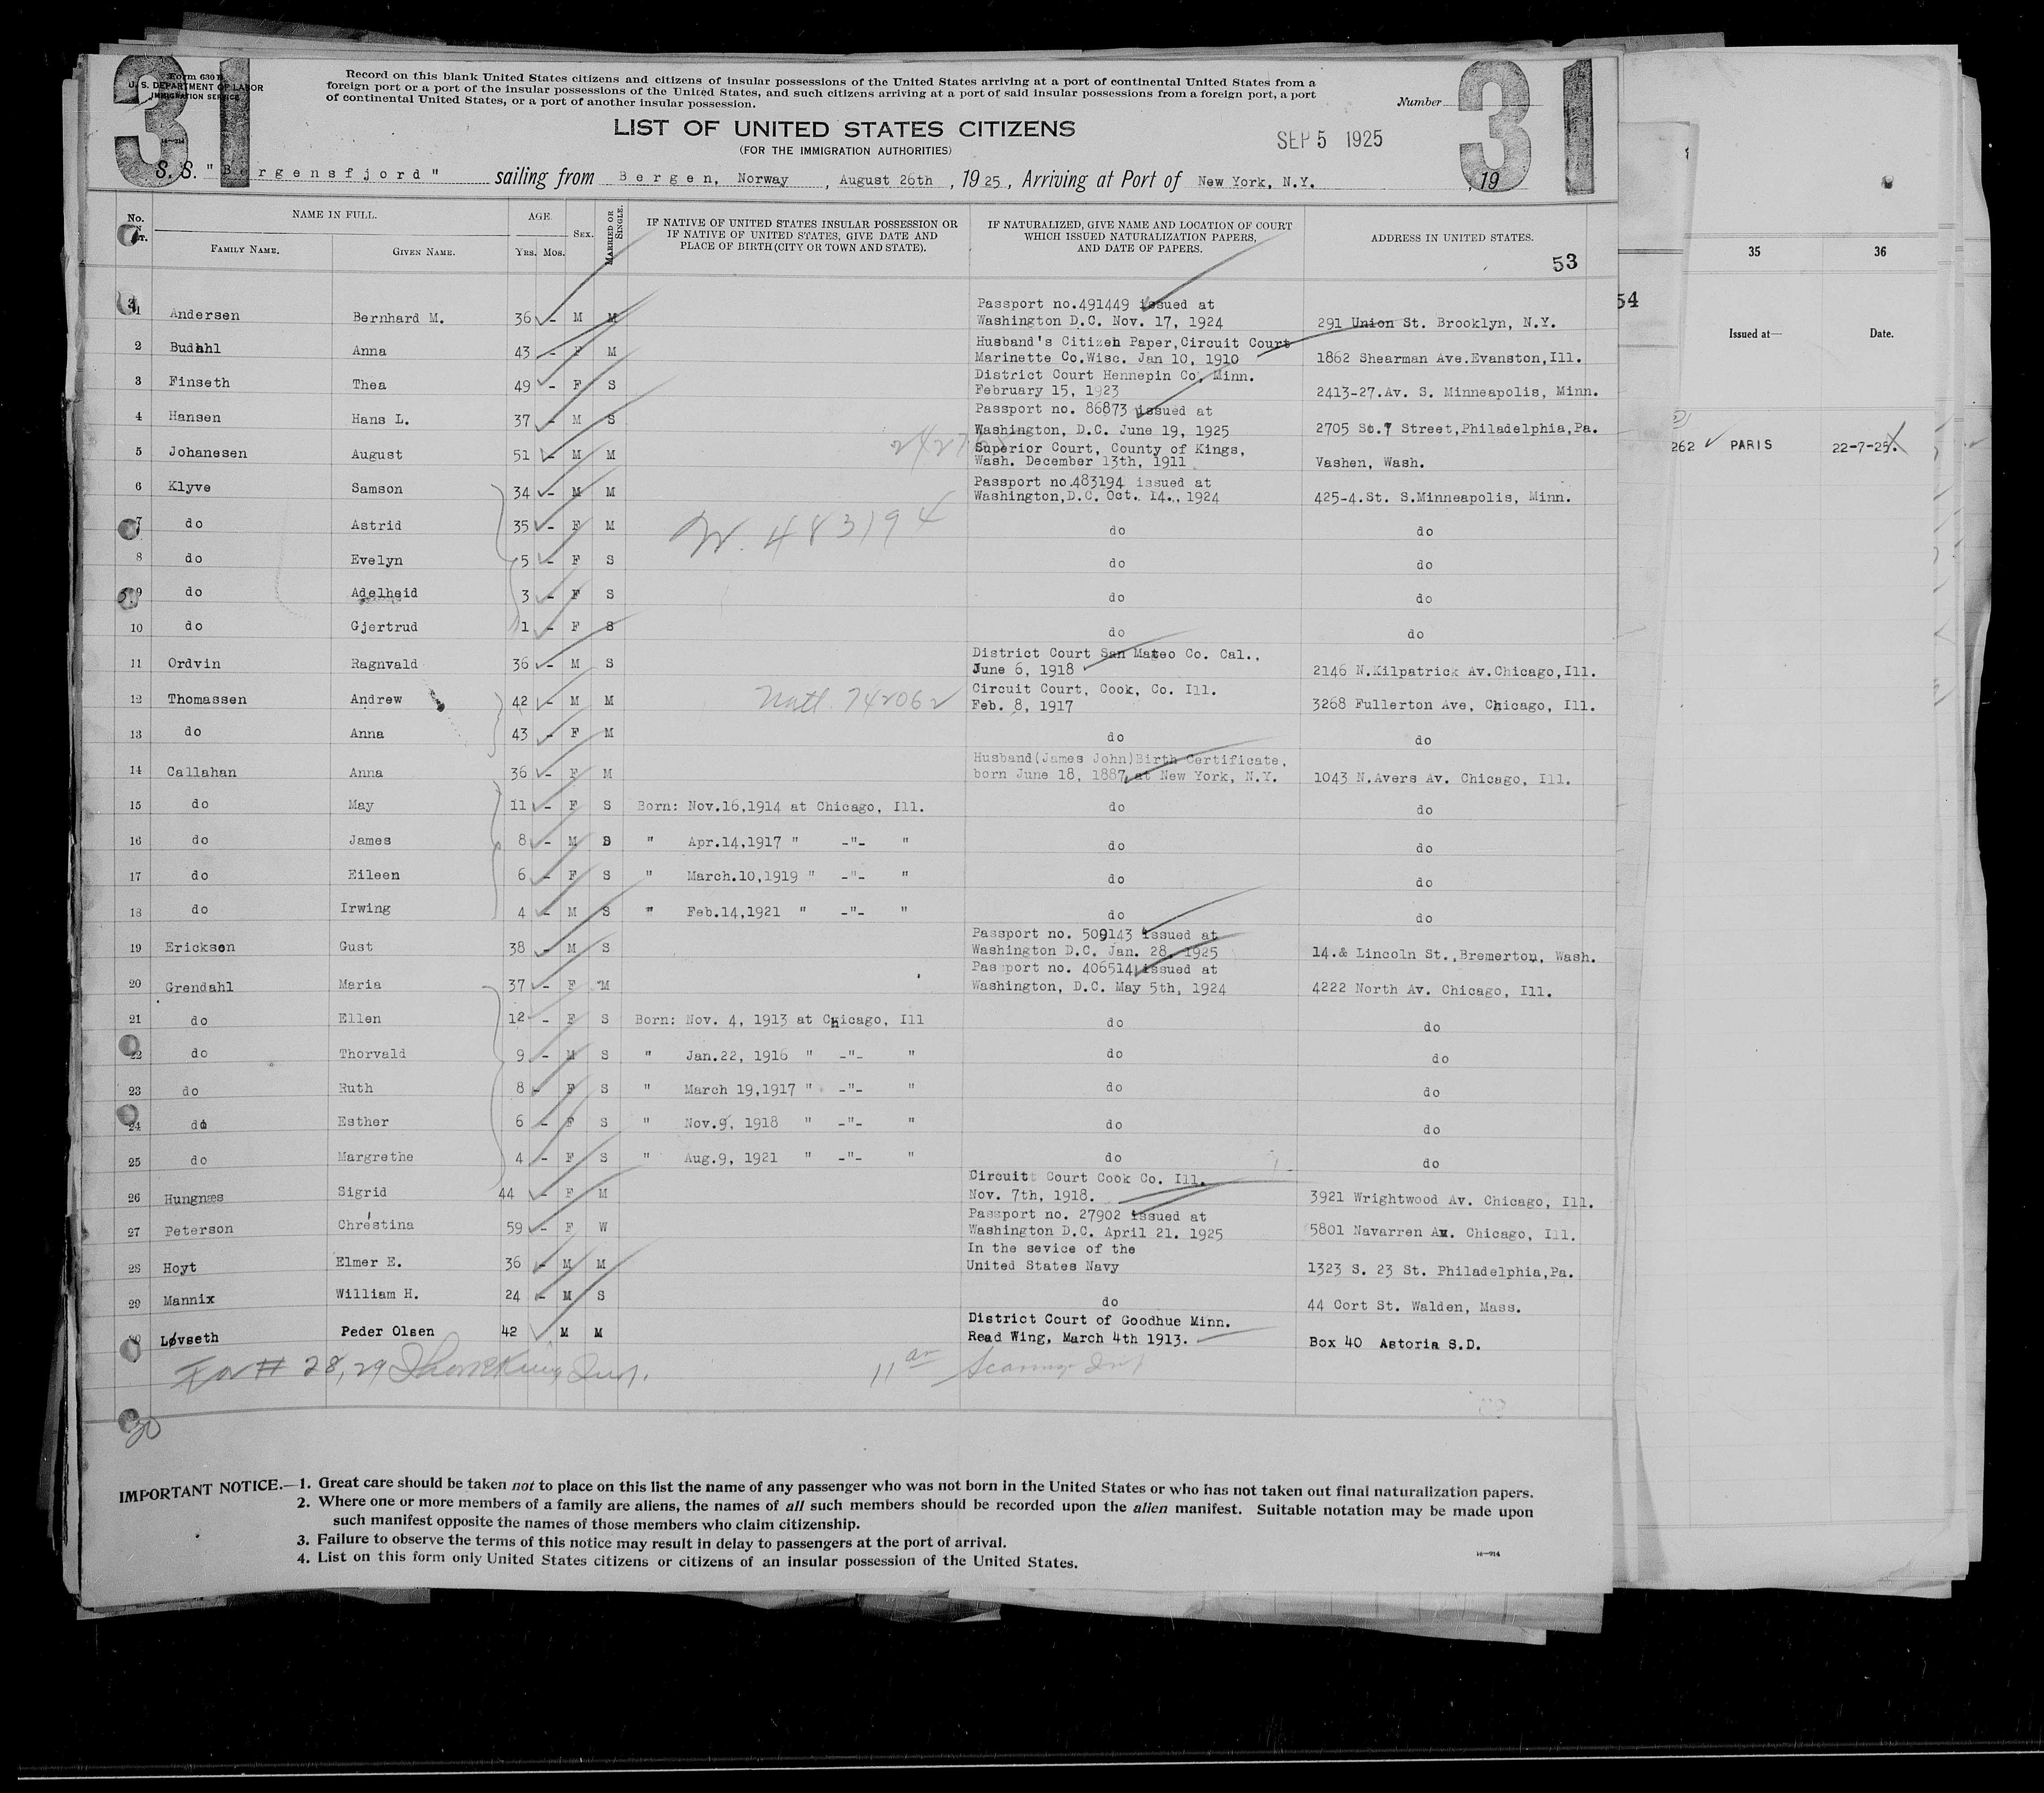 31
Form 630 B
U. S. DEPARTMENT OF LABOR
IMMIGRATION SERVICE
Record on this blank United States citizens and citizens of insular possessions of the United States arriving at a port of continental United States from a
foreign port or a port of the insular possessions of the United States, and such citizens arriving at a port of said insular possessions from a foreign port, a port
of continental United States, or a port of another insular possession.
Number
31
LIST OF UNITED STATES CITIZENS
(FOR THE IMMIGRATION AUTHORITIES)
SEP 5 1925
S. S. "Bergensfjord" sailing from Bergen, Norway, August 26th, 1925, Arriving at Port of New York, N.Y., 19
No. NAME IN FULL. AGE. SEX. MARRIED OR SINGLE. IF NATIVE OF UNITED STATES INSULAR POSSESSION OR IF NATIVE OF UNITED STATES, GIVE DATE AND PLACE OF BIRTH (CITY OR TOWN AND STATE). IF NATURALIZED, GIVE NAME AND LOCATION OF COURT WHICH ISSUED NATURALIZATION PAPERS, AND DATE OF PAPERS. ADDRESS IN UNITED STATES.
FAMILY NAME. GIVEN NAME. YRS. MOS.
53
1 Andersen Bernhard M. 36 - M M Passport no.491449 issued at Washington D.C. Nov. 17, 1924 291 Union St. Brooklyn, N.Y.
2 Budahl Anna 43 - F M Husband's Citizen Paper,Circuit Court Marinette Co.Wisc. Jan 10, 1910 1862 Shearman Ave.Evanston,Ill.
3 Finseth Thea 49 - F S District Court Hennepin Co, Minn. February 15, 1923 2413-27.Av. S. Minneapolis, Minn.
4 Hansen Hans L. 37 - M S Passport no. 86873 issued at Washington, D.C. June 19, 1925 2705 So.7 Street,Philadelphia,Pa.
5 Johanesen August 51 - M M Superior Court, County of Kings, Wash. December 13th, 1911 Vashen, Wash.
6 Klyve Samson 34 - M M Passport no.483194 issued at Washington,D.C. Oct. 14., 1924 425-4.St. S.Minneapolis, Minn.
7 do Astrid 35 - F M do do
483194
8 do Evelyn 5 - F S do do
9 do Adelheid 3 - F S do do
10 do Gjertrud 1 - F S do do
11 Ordvin Ragnvald 36 - M S District Court San Mateo Co. Cal., June 6, 1918 2146 N.Kilpatrick Av.Chicago,Ill.
12 Thomassen Andrew 42 - M M Natl. 742062 Circuit Court, Cook, Co. Ill. Feb. 8, 1917 3268 Fullerton Ave, Chicago, Ill.
13 do Anna 43 - F M do do
14 Callahan Anna 36 - F M Husband(James John)Birth Certificate, born June 18, 1887, at New York, N.Y. 1043 N.Avers Av. Chicago, Ill.
15 do May 11 - F S Born: Nov.16,1914 at Chicago, Ill. do do
16 do James 8 - M S " Apr.14,1917 " -"- " do do
17 do Eileen 6 - F S " March.10,1919 " -"- " do do
18 do Irwing 4 - M S " Feb.14,1921 " -"- " do do
19 Ericksen Gust 38 - M S Passport no. 509143 issued at Washington D.C. Jan. 28, 1925 14.& Lincoln St.,Bremerton, Wash.
20 Grendahl Maria 37 - F M Passport no. 406514 issued at Washington, D.C. May 5th, 1924 4222 North Av. Chicago, Ill.
21 do Ellen 12 - F S Born: Nov. 4, 1913 at Chicago, Ill do do
22 do Thorvald 9 - M S " Jan.22, 1916 " -"- " do do
23 do Ruth 8 - F S " March 19,1917 " -"- " do do
24 do Esther 6 - F S " Nov.9, 1918 " -"- " do do
25 do Margrethe 4 - F S " Aug.9, 1921 " -"- " do do
26 Hungnæs Sigrid 44 - F M Circuit Court Cook Co. Ill. Nov. 7th, 1918. 3921 Wrightwood Av. Chicago, Ill.
27 Peterson Chréstina 59 - F W Passport no. 27902 issued at Washington D.C. April 21. 1925 5801 Navarren Av. Chicago, Ill.
28 Hoyt Elmer E. 36 - M M In the sevice of the United States Navy 1323 S. 23 St. Philadelphia,Pa.
29 Mannix William H. 24 - M S do 44 Cort St. Walden, Mass.
30 Løvseth Peder Olsen 42 M M District Court of Goodhue Minn. Read Wing, March 4th 1913. Box 40 Astoria S.D.
For # 28, 29
30
IMPORTANT NOTICE.—1. Great care should be taken not to place on this list the name of any passenger who was not born in the United States or who has not taken out final naturalization papers.
2. Where one or more members of a family are aliens, the names of all such members should be recorded upon the alien manifest. Suitable notation may be made upon
such manifest opposite the names of those members who claim citizenship.
3. Failure to observe the terms of this notice may result in delay to passengers at the port of arrival.
4. List on this form only United States citizens or citizens of an insular possession of the United States.
14—914
35 36
54
Issued at— Date.
262 PARIS 22-7-25.